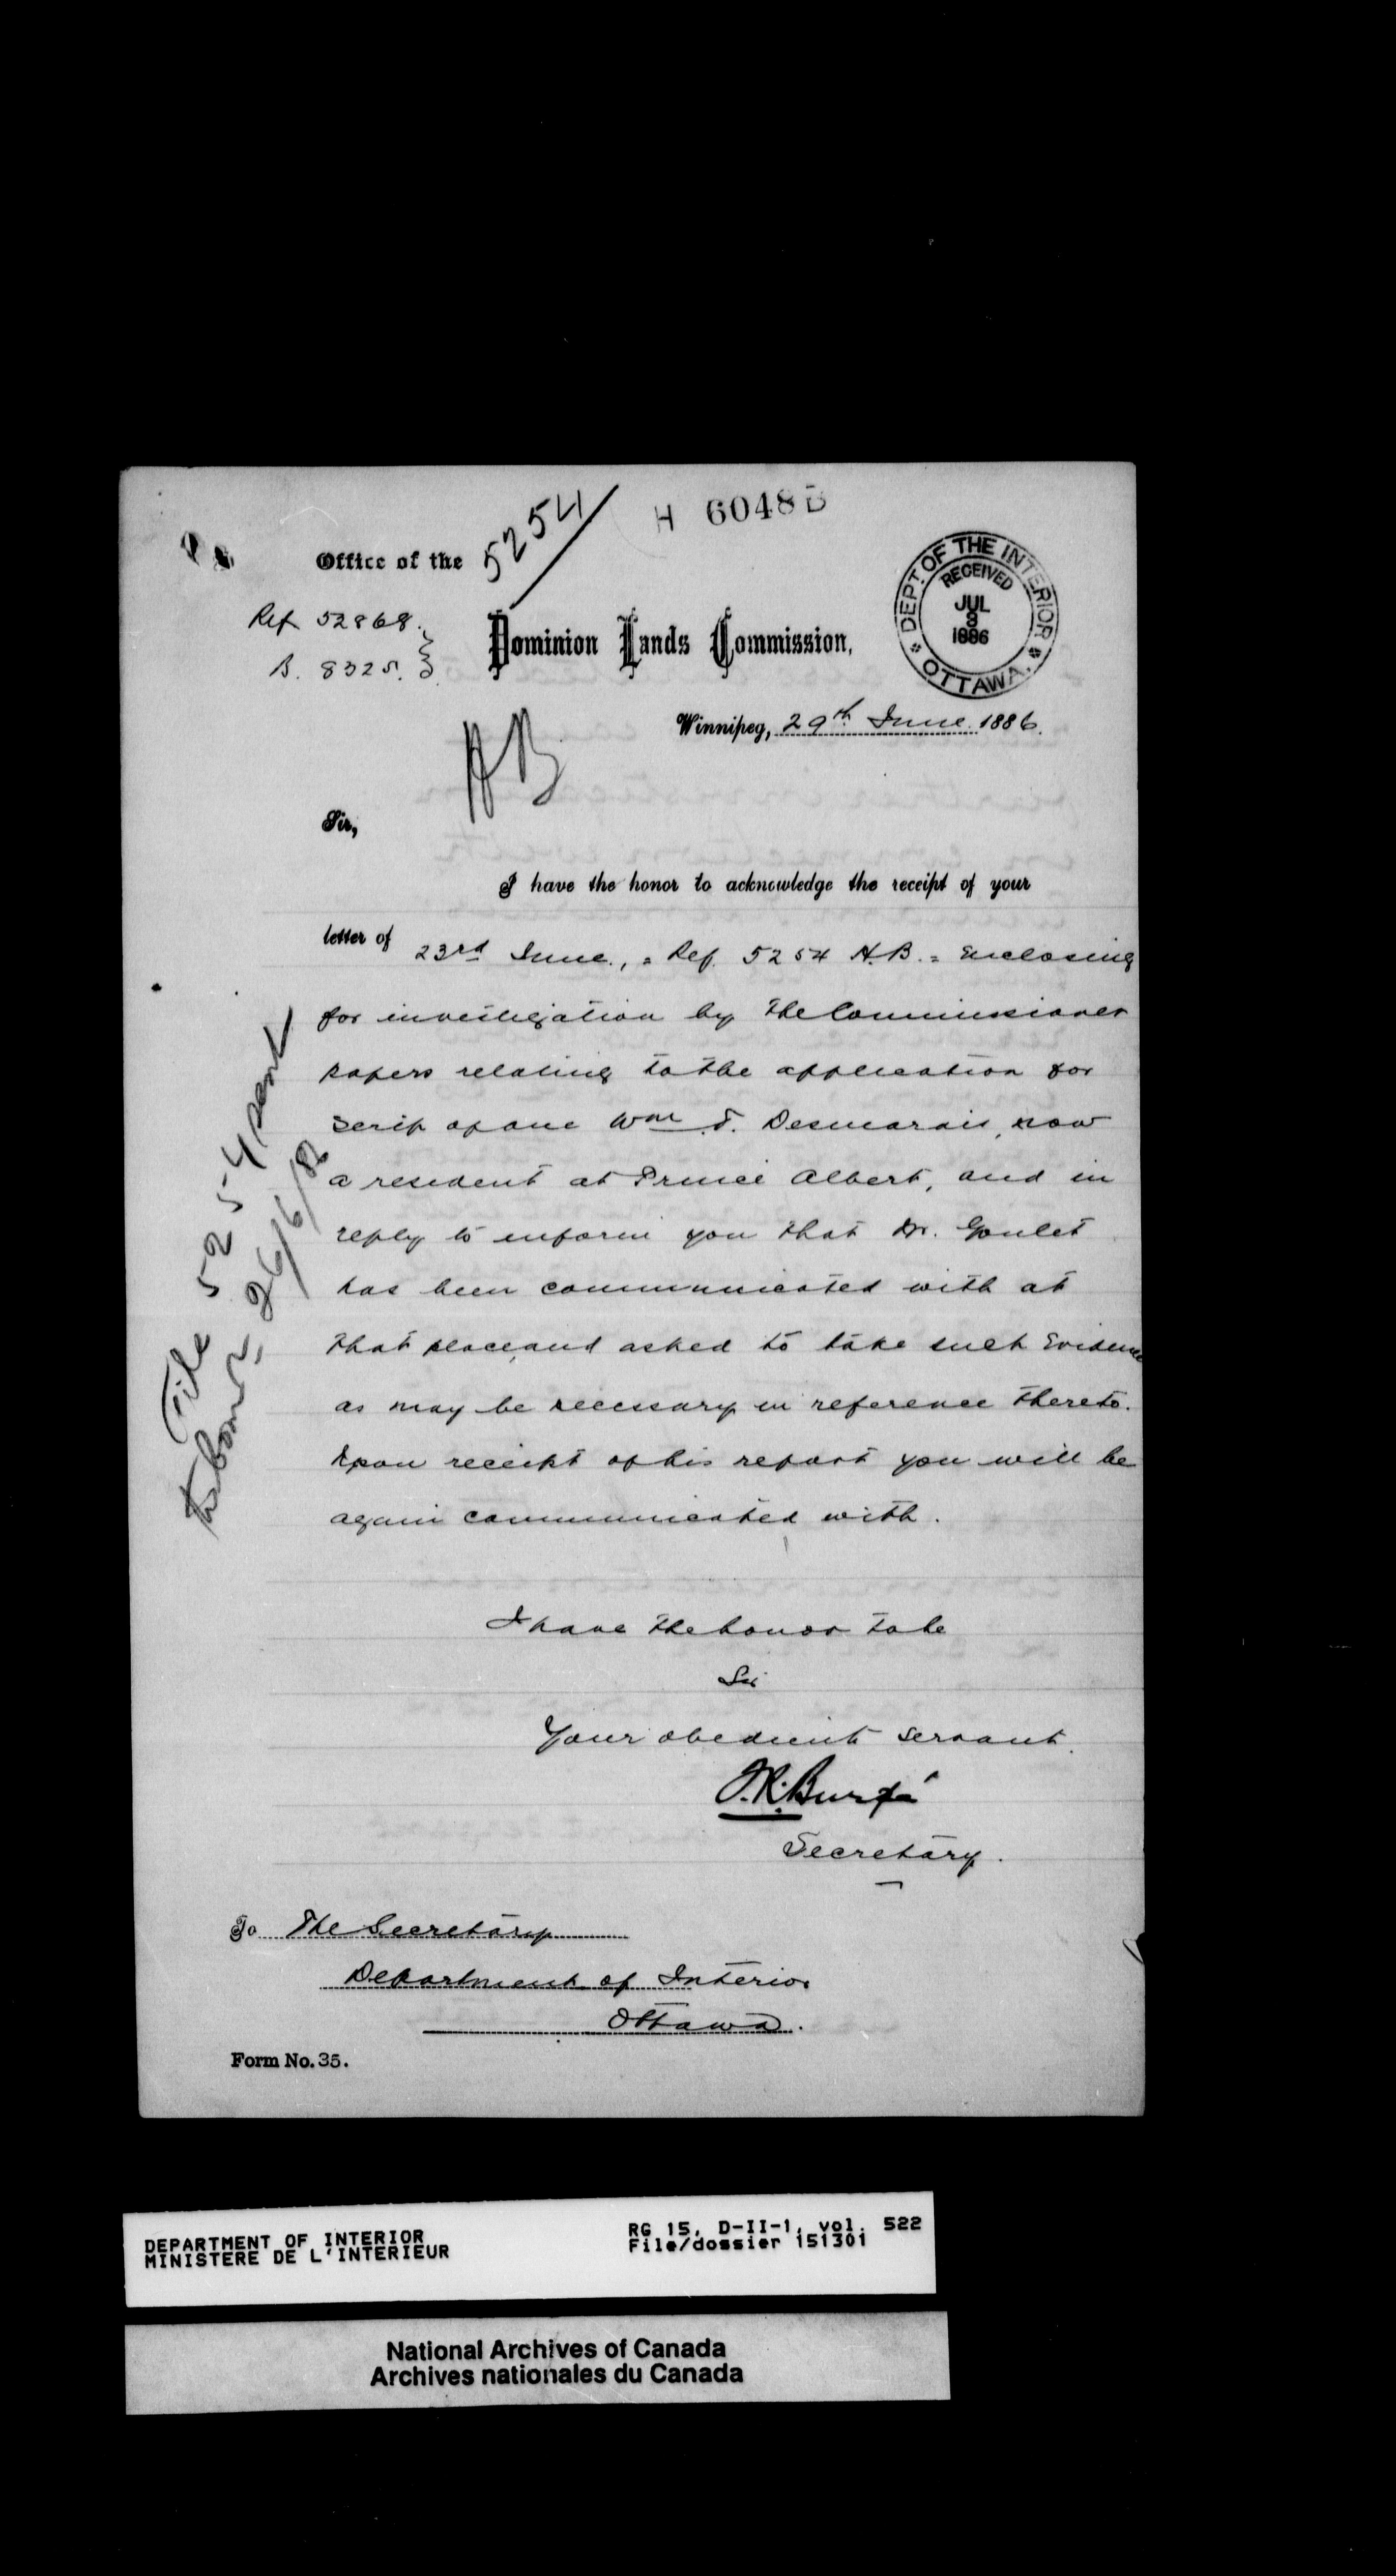 5254
H 6048 B
Office of the
Ref 52868.
B. 8325.
Dominion Lands Commission,
DEPT. OF THE INTERIOR
RECEIVED
JUL
9
1886
OTTAWA.
Winnipeg, 29th June 1886.
HB
Sir,
I have the honor to acknowledge the receipt of your
letter of 23rd June., = Ref. 5254 H.B. = Enclosing
for investigation by the Commissioner
papers relating to the application for
scrip of one Wm J. Desmarais, now
a resident at Prince Albert, and in
reply to inform you that Mr. Goulet
has been communicated with at
that place, and asked to take such Evidence
as may be necessary in reference thereto.
Upon receipt of his report you will be
again communicated with.
I have the honor to be
Sir
Your obedient servant.
Secretary.
File 5254 sent
26/6/86
To The Secretary
Department of Interior
Ottawa.
Form No. 35.
DEPARTMENT OF INTERIOR
MINISTERE DE L'INTERIEUR
RG 15, D-II-1, vol. 522
File/dossier 151301
National Archives of Canada
Archives nationales du Canada